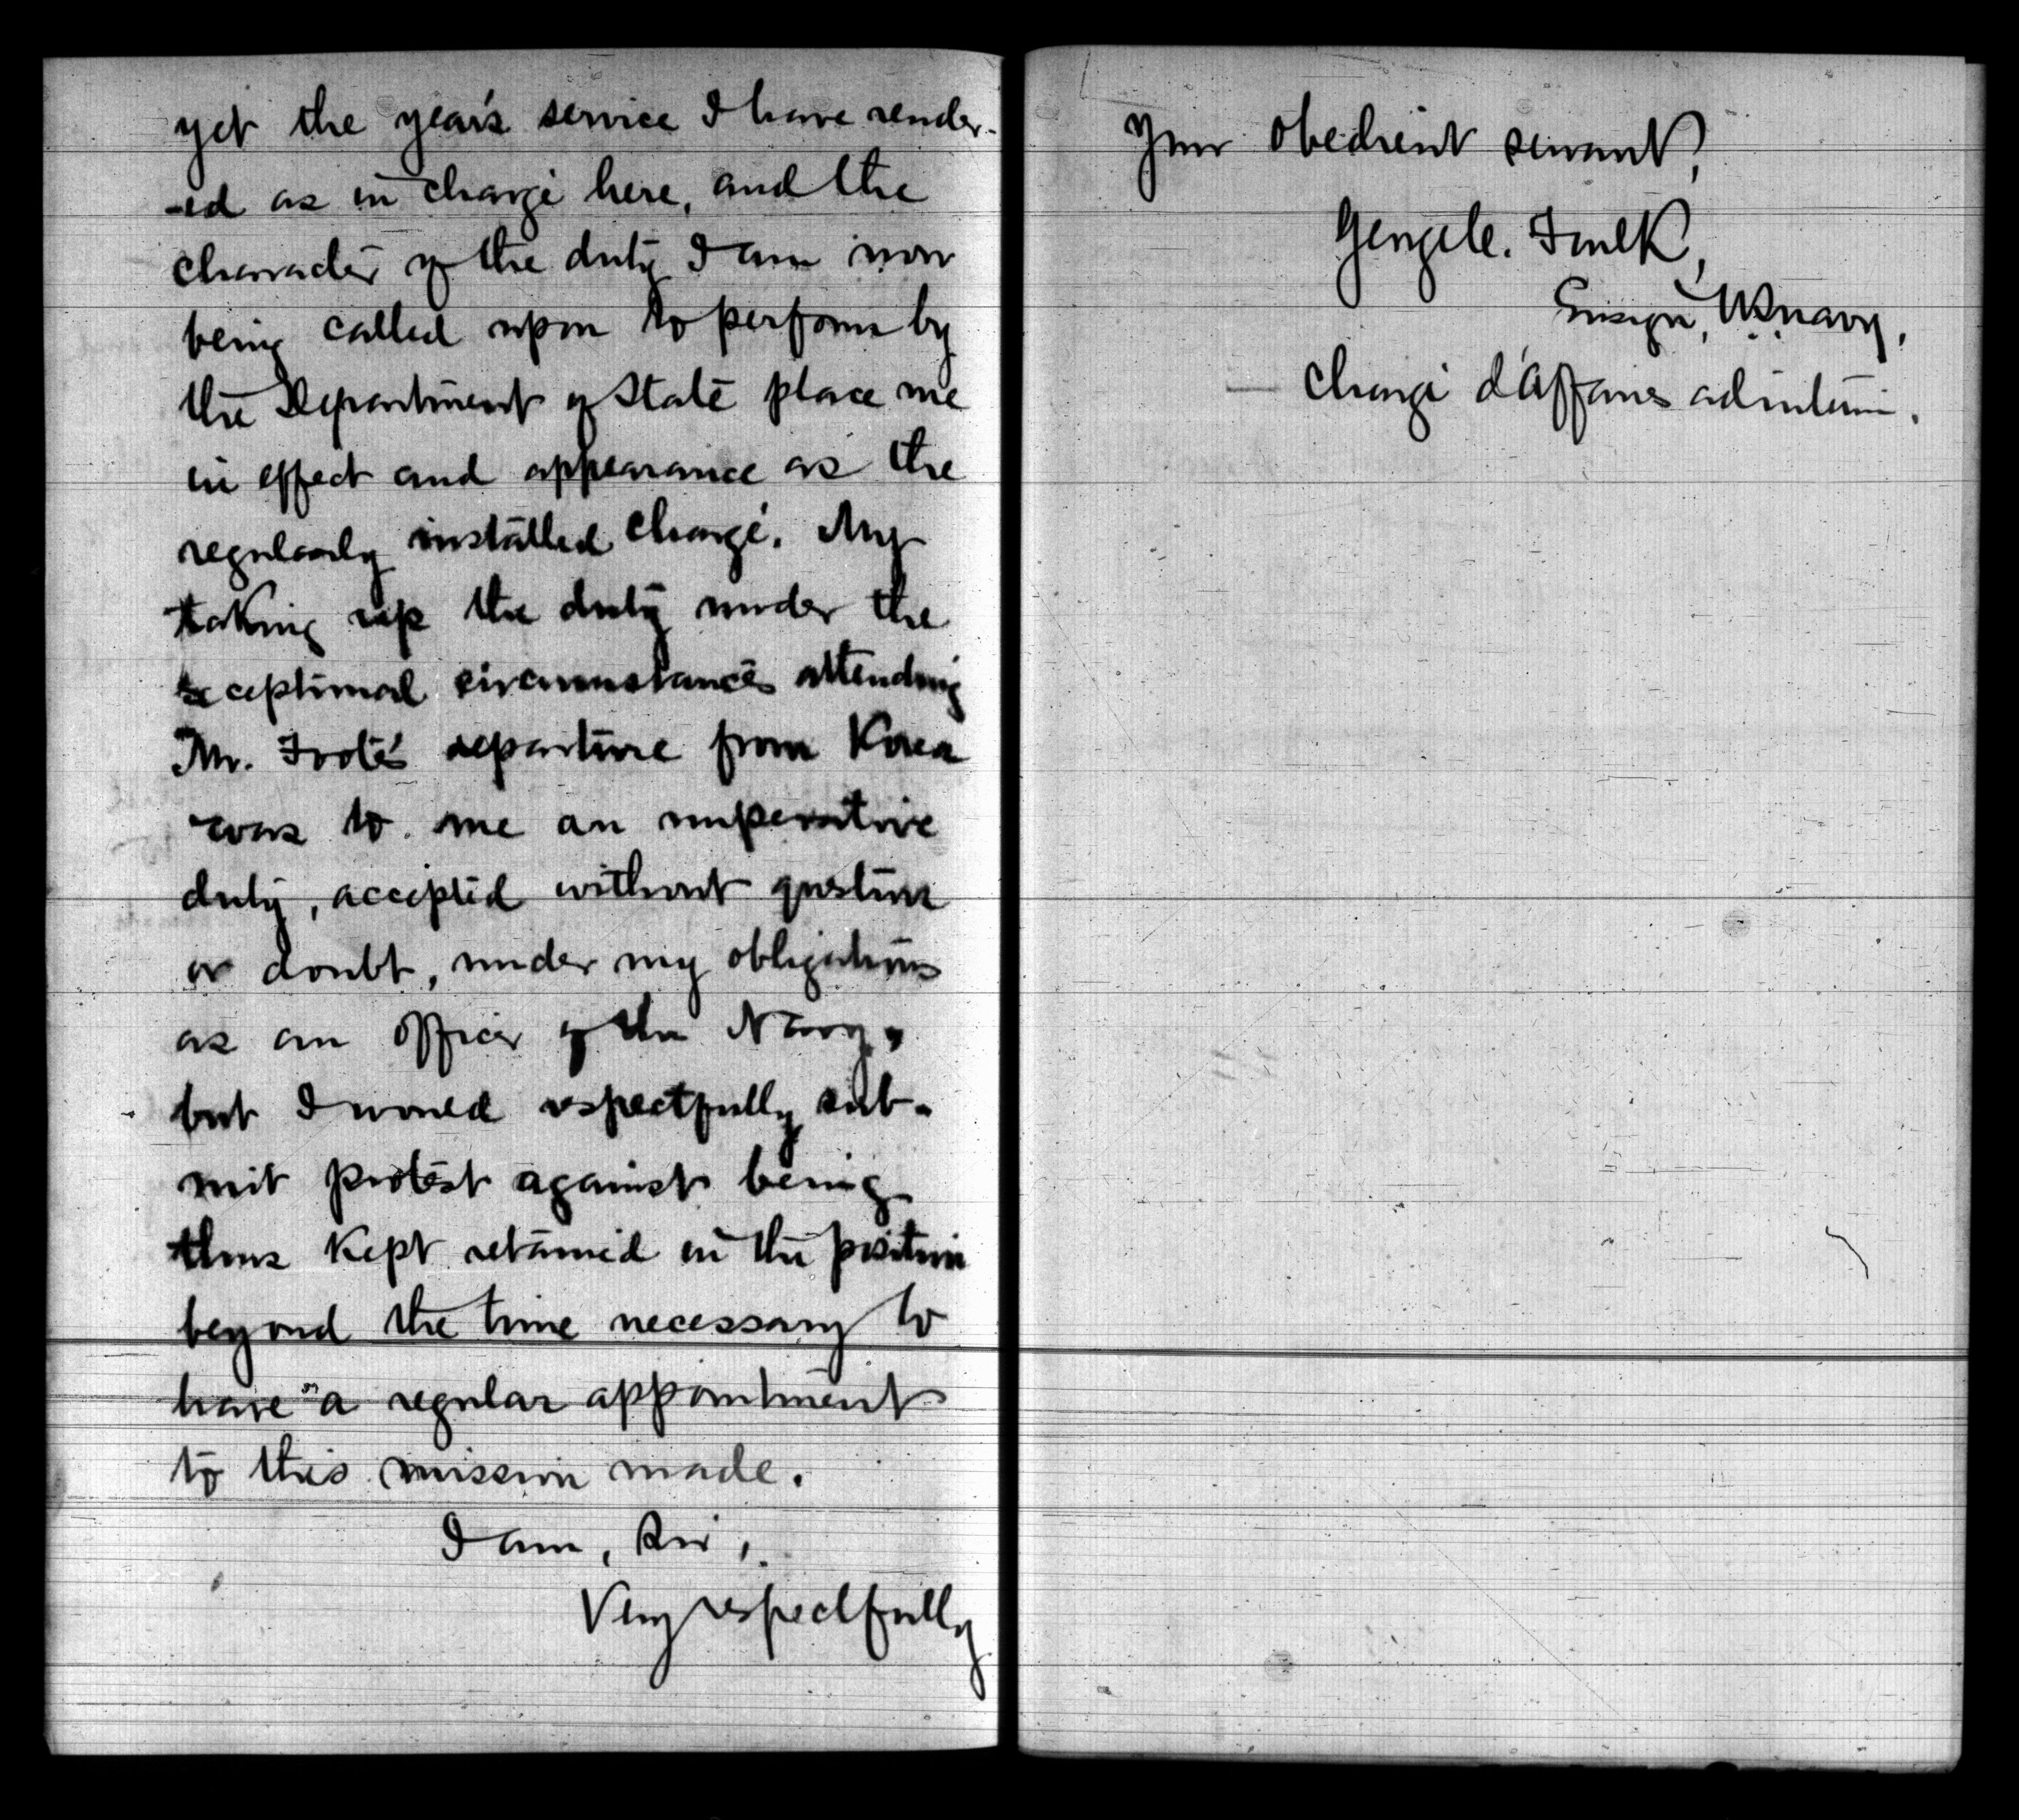 yet the year's service I have render-
-ed as in charge here, and the
character of the duty I am now
being called upon to perform by
the Department of State place me
in effect and appearance as the
regularly installed Chargé. My
taking up the duty under the
exceptional circumstances attending
Mr. Foote's departure from Korea
was to me an imperative
duty, accepted without question
or doubt, under my obligations
as an officer of the Navy,
but I would respectfully sub-
mit protest against being
thus kept retained in the position
beyond the time necessary to
have a regular appointment
to this mission made.
I am, Sir,
Very respectfully
Your obedient servant,
George C. Foulk,
Ensign, U.S. Navy,
— Chargé d'Affaires ad interim.